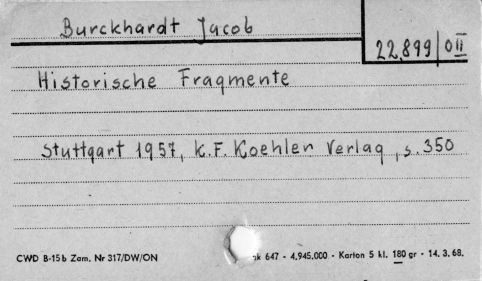 Burckhardt Jacob
22,899 0 II
Historische Fragmente
Stuttgart 1957, K.F. Koehler Verlag, s. 350
CWD B-15 b Zam. Nr 317/DW/ON 647 - 4.945.000 - Karton 5 kl. 180 gr - 14. 3. 68.